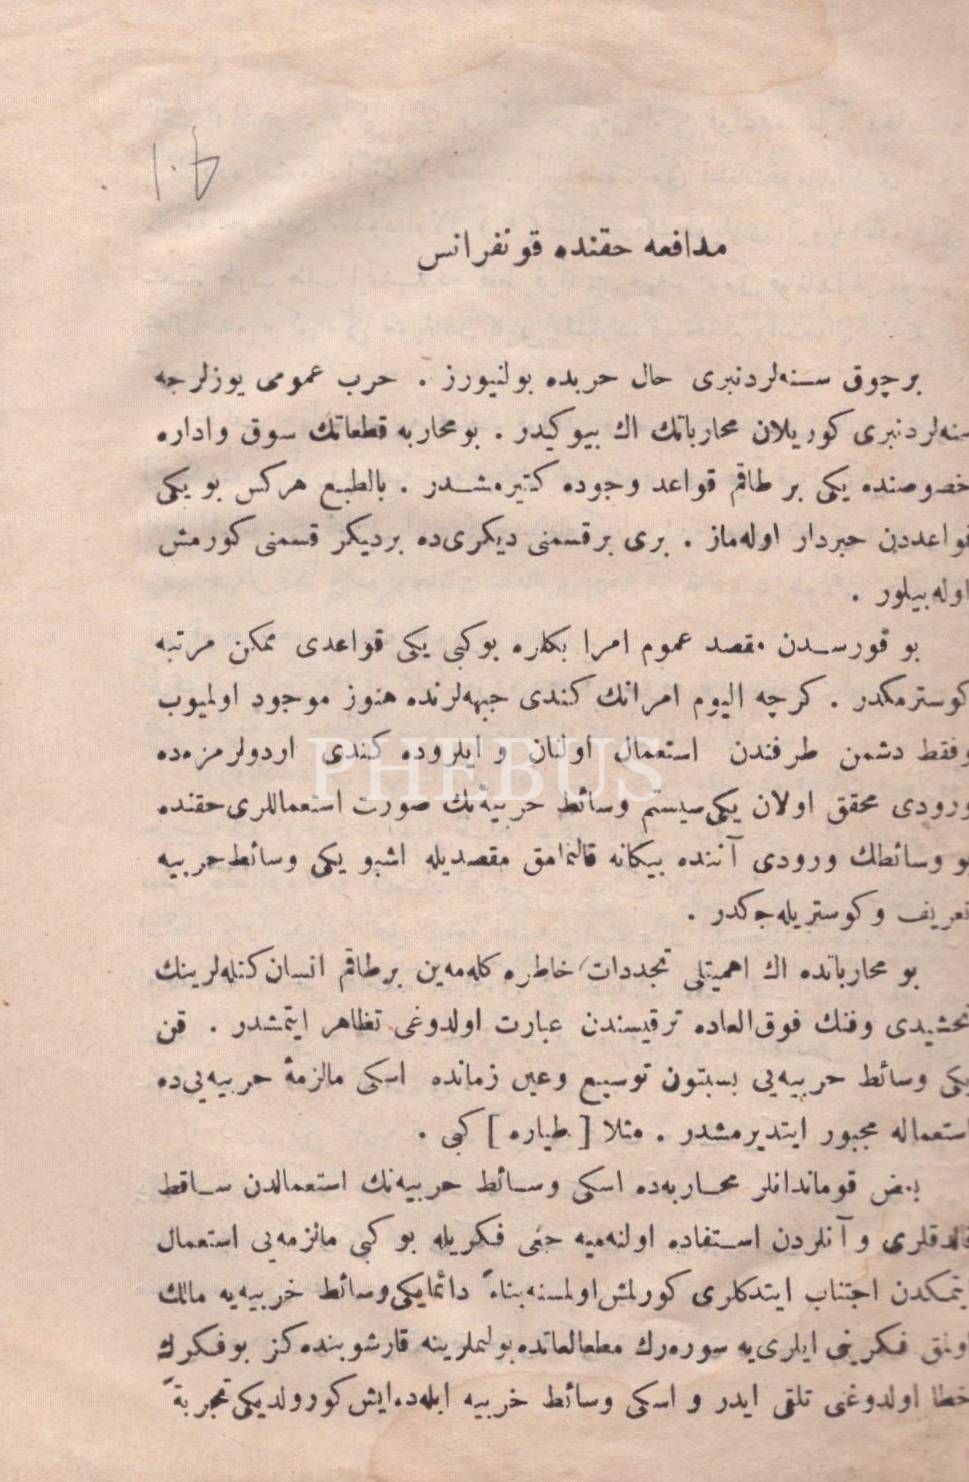 مدافعه حقنده قونفرانس
بر چوق سنه‌لردنبری حال حربده بولنیورز . حرب عمومی یوزلرجه
سنه‌لردنبری کوریلان محارباتك اك بیوكیدر . بو محاربه قطعاتك سوق واداره
خصوصنده یكی بر طاقم قواعد وجوده كتیرمشدر . بالطبع هركس بو یكی
قواعددن خبردار اوله‌ماز . بری برقسمنی دیكری‌ده بردیكر قسمنی كورمش
اوله‌بیلور .
بو قورسدن مقصد عموم امرا بكلره بوكبی یكی قواعدی ممكن مرتبه
كوسترمكدر . كرچه الیوم امرانك كندی جبهه‌لرنده هنوز موجود اولمیوب
وفقط دشمن طرفندن استعمال اولنان و ایلروده كندی اردولرمزه‌ده
ورودی محقق اولان یكی سیستم وسائط حربیه‌نك صورت استعماللری حقنده
بو وسائطك ورودی آننده بیكانه قالنمامق مقصدیله اشبو یكی وسائط حربیه
تعریف وكوستریله‌جكدر .
بو محارباتده اك اهمیتلی تجددات خاطره كله‌مه‌ین برطاقم انسان كتله‌لرینك
تحشیدی وفنك فوق‌العاده ترقیسندن عبارت اولدوغی تظاهر ایتمشدر . فن
یكی وسائط حربیه‌یی بسبتون توسیع وعین زمانده اسكی مالزمهٔ حربیه‌یی‌ده
استعماله مجبور ایتدیرمشدر . مثلا [ طیاره ] كبی .
بعض قوماندانلر محاربه‌ده اسكی وسائط حربیه‌نك استعمالدن ساقط
قالدقلری و آنلردن استفاده اولنه‌میه‌جغی فكریله بو كبی مالزمه‌یی استعمال
ایتمكدن اجتناب ایتدكلری كورلمش اولمسنه بناءً دائما یكی وسائط حربیه‌یه مالك
اولمق فكرینی ایلری‌یه سوره‌رك مطالعاتده بولنملرینه قارشو بنده‌كز بوفكرك
خطا اولدوغنی تلقی ایدر و اسكی وسائط حربیه ایله‌ده ایش كورولدیكی تجربةً
PHEBUS